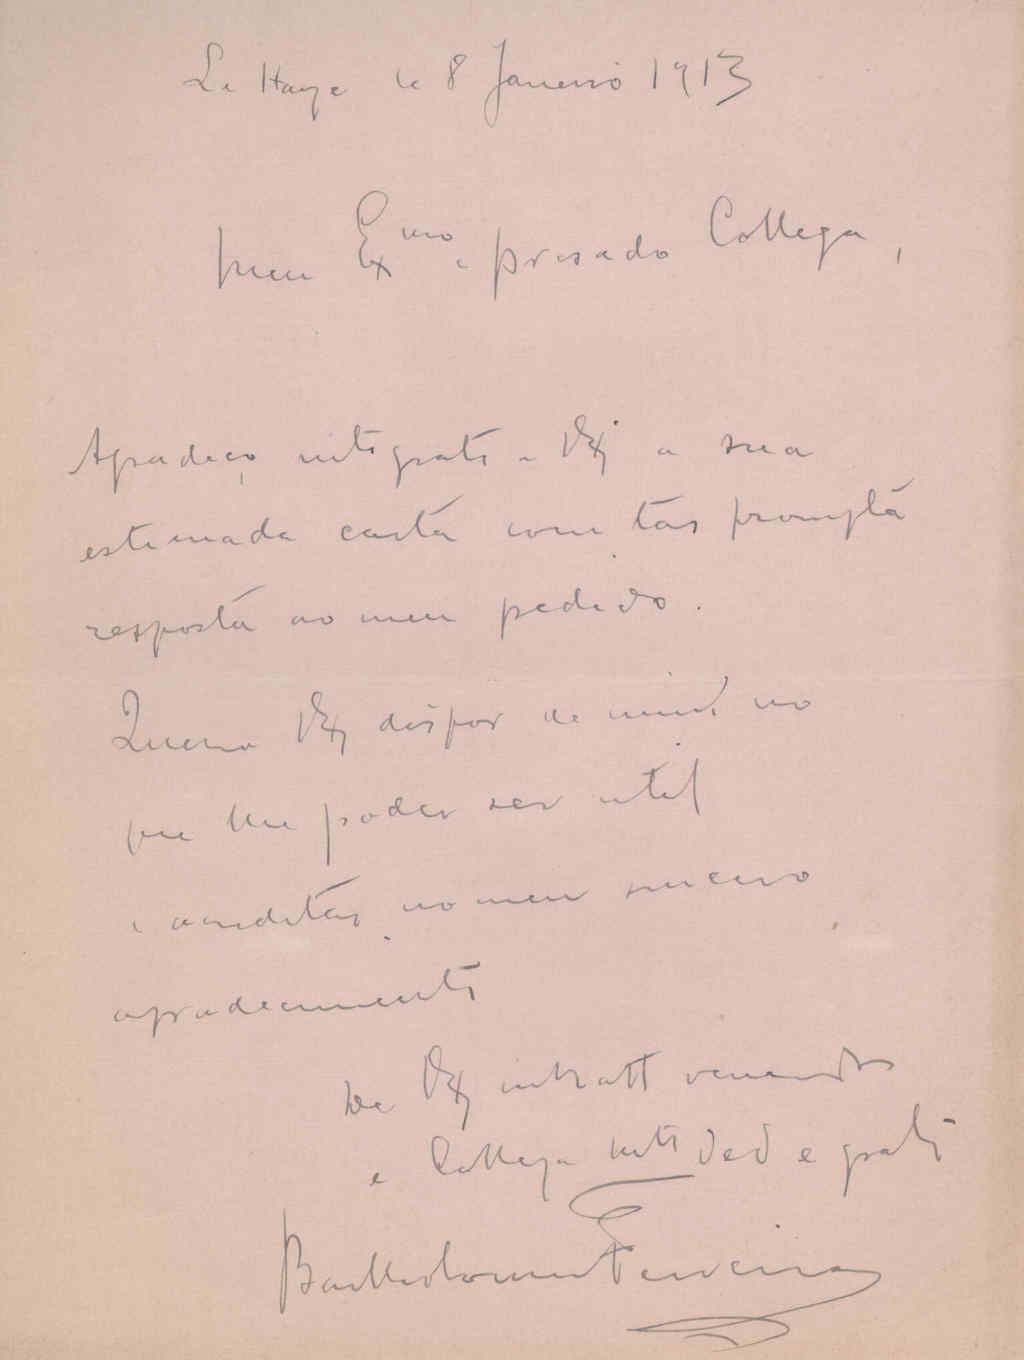 La Haye le 8 Janeiro 1913
Meu Exmo e presado Collega,
Agradeço mto grato a VEx a sua
estimada carta com tão prompta
resposta ao meu pedido.
Queira VEx dispor de mim no
que lhe poder ser util
e acreditar no meu sincero
agradecimento
De VEx mto att venerador
e Collega mto ded e grato
Bartholomeu Ferreira